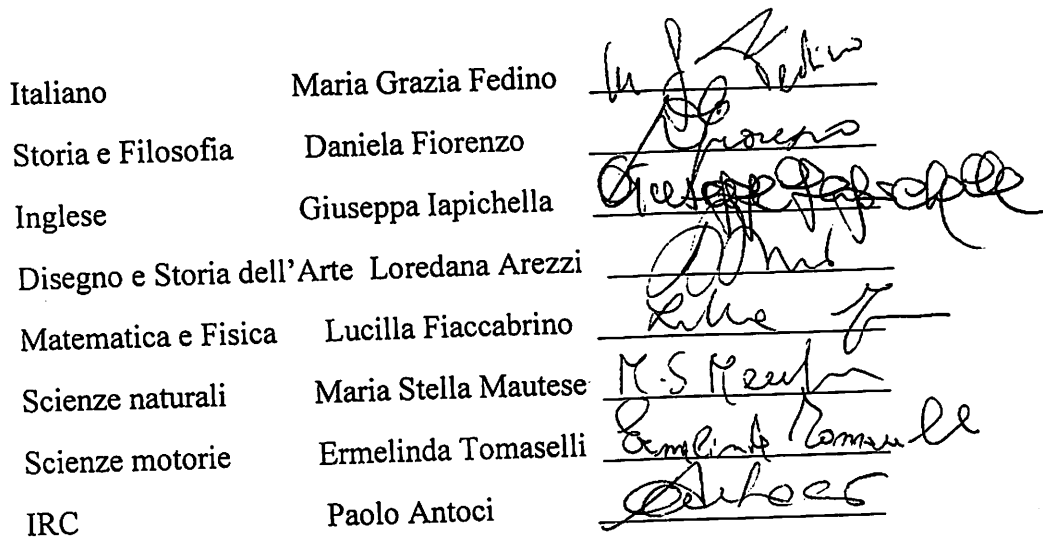 Italiano Maria Grazia Fedino
Storia e Filosofia Daniela Fiorenzo
Inglese Giuseppa Iapichella Giuseppa Iapichella
Disegno e Storia dell'Arte Loredana Arezzi
Matematica e Fisica Lucilla Fiaccabrino
Scienze naturali Maria Stella Mautese
Scienze motorie Ermelinda Tomaselli Ermelinda Tomaselli
IRC Paolo Antoci